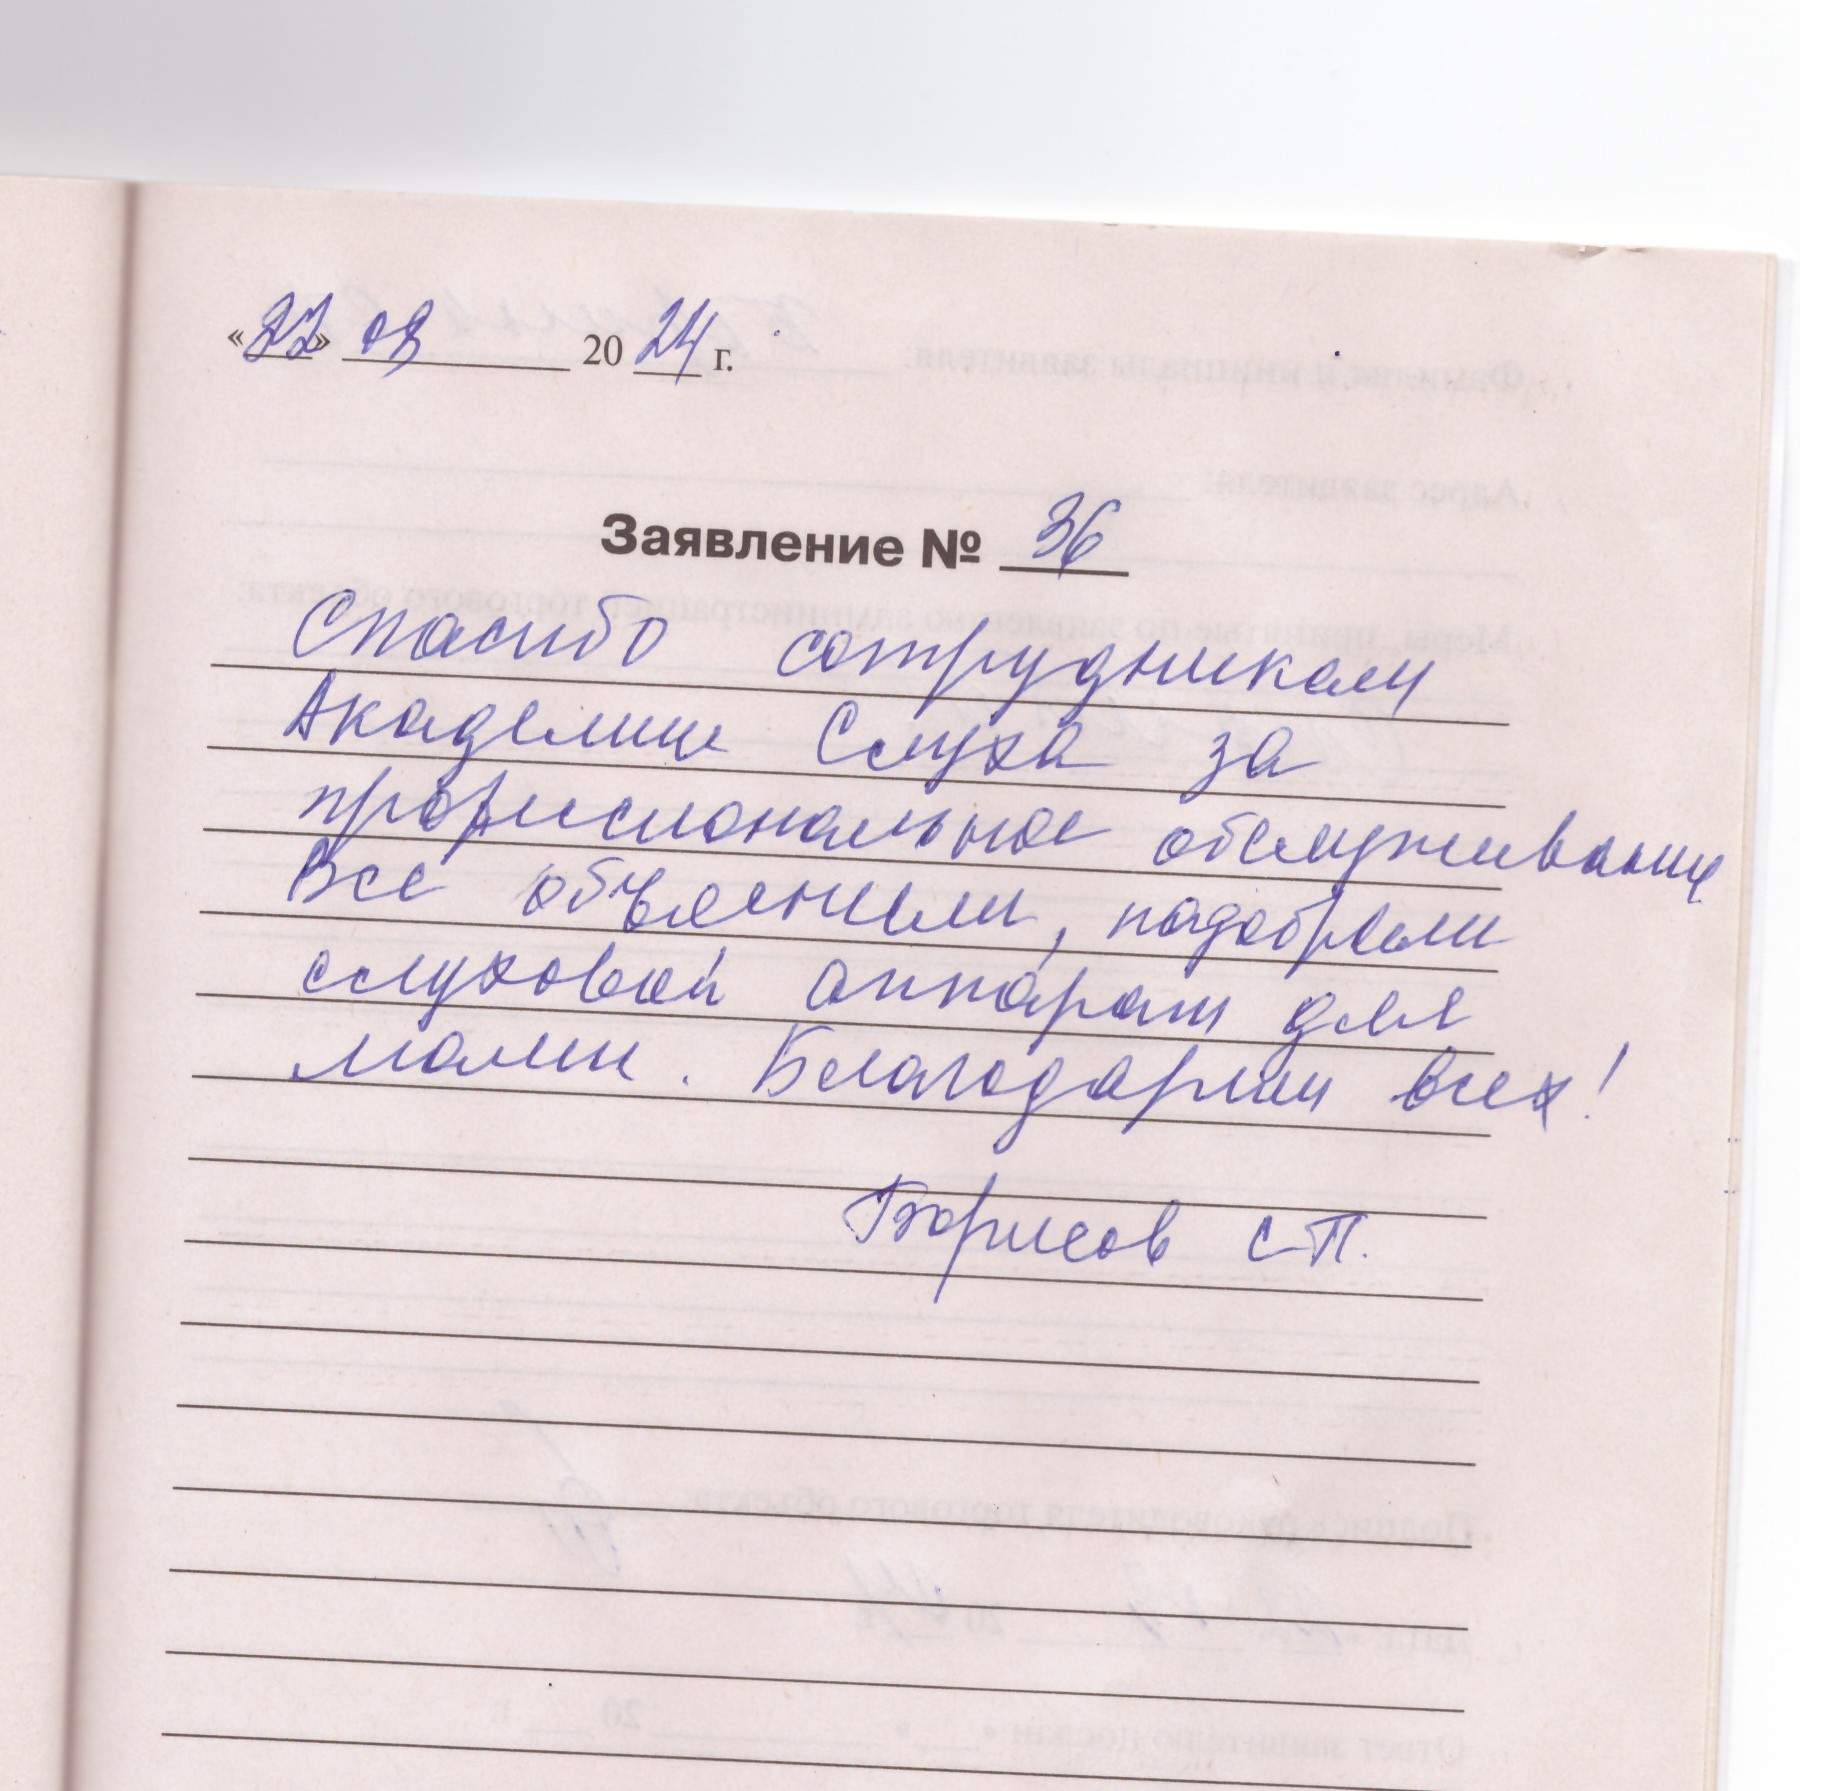 «22» 08 2024 г.
Заявление № 36
Спасибо сотрудникам
Академии Слуха за
профессиональное обслуживание
Все объяснили, подобрали
слуховой аппарат для
мамы. Благодарим всех!
Борисов С.П.